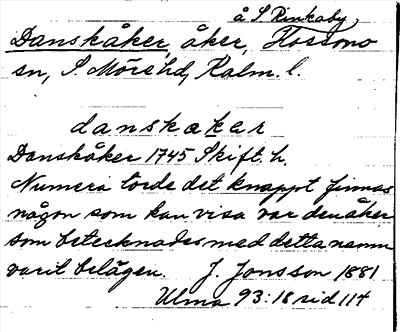 å S Rinkaby,
Danskåker, åker, Hossmo
sn, S. Möre hd, Kalm. l.
danskakar
Danskåker 1745 Skift. h.
Numera torde det knappt finnas
någon som kan visa var den åker
som betecknades med detta namn
varit belägen. J. Jonsson 1881
Ulma 93:18 sid 114